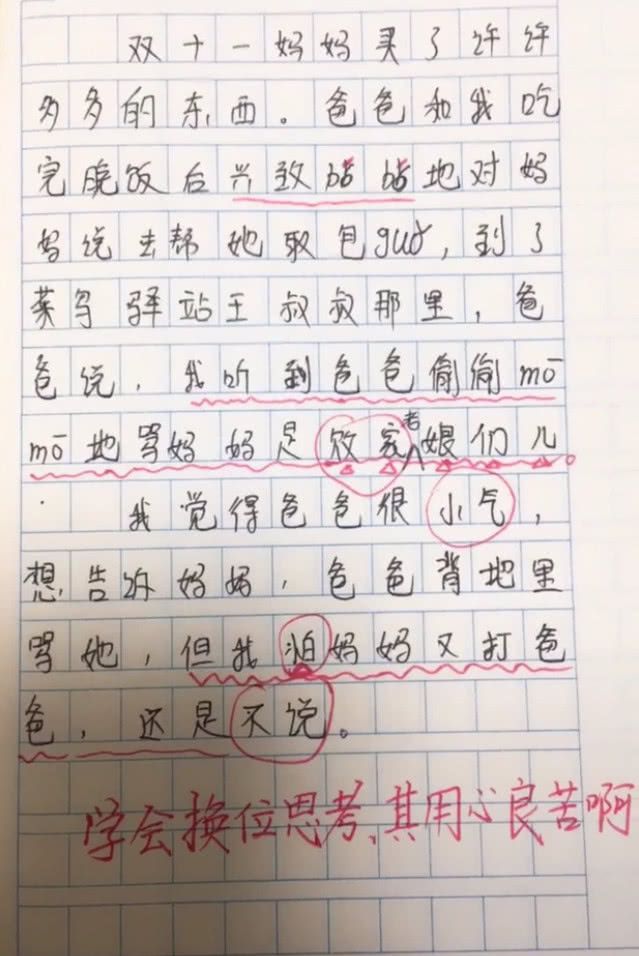 双十一妈妈买了许许
多多的东西。爸爸和我吃
完晚饭后兴致bó bó地对妈
妈说去帮她取包guǒ,到了
菜鸟驿站王叔叔那里,爸
爸说,我听到爸爸偷偷mō
mō地骂妈妈是败家老娘们儿。
我觉得爸爸很小气,
想告诉妈妈,爸爸背地里
骂她,但我怕妈妈又打爸
爸,还是不说。
学会换位思考,其用心良苦啊